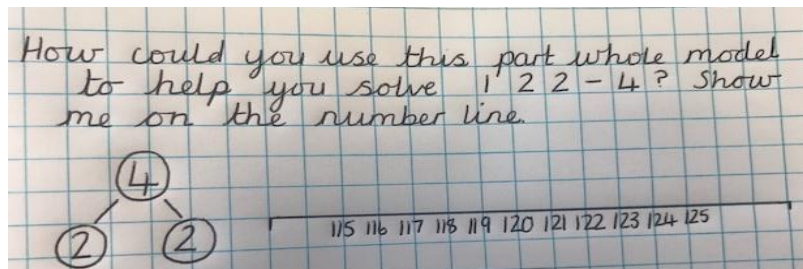 How could you use this part whole model
to help you solve 122-4? Show
me on the number line.
4
2 2
115 116 117 118 119 120 121 122 123 124 125